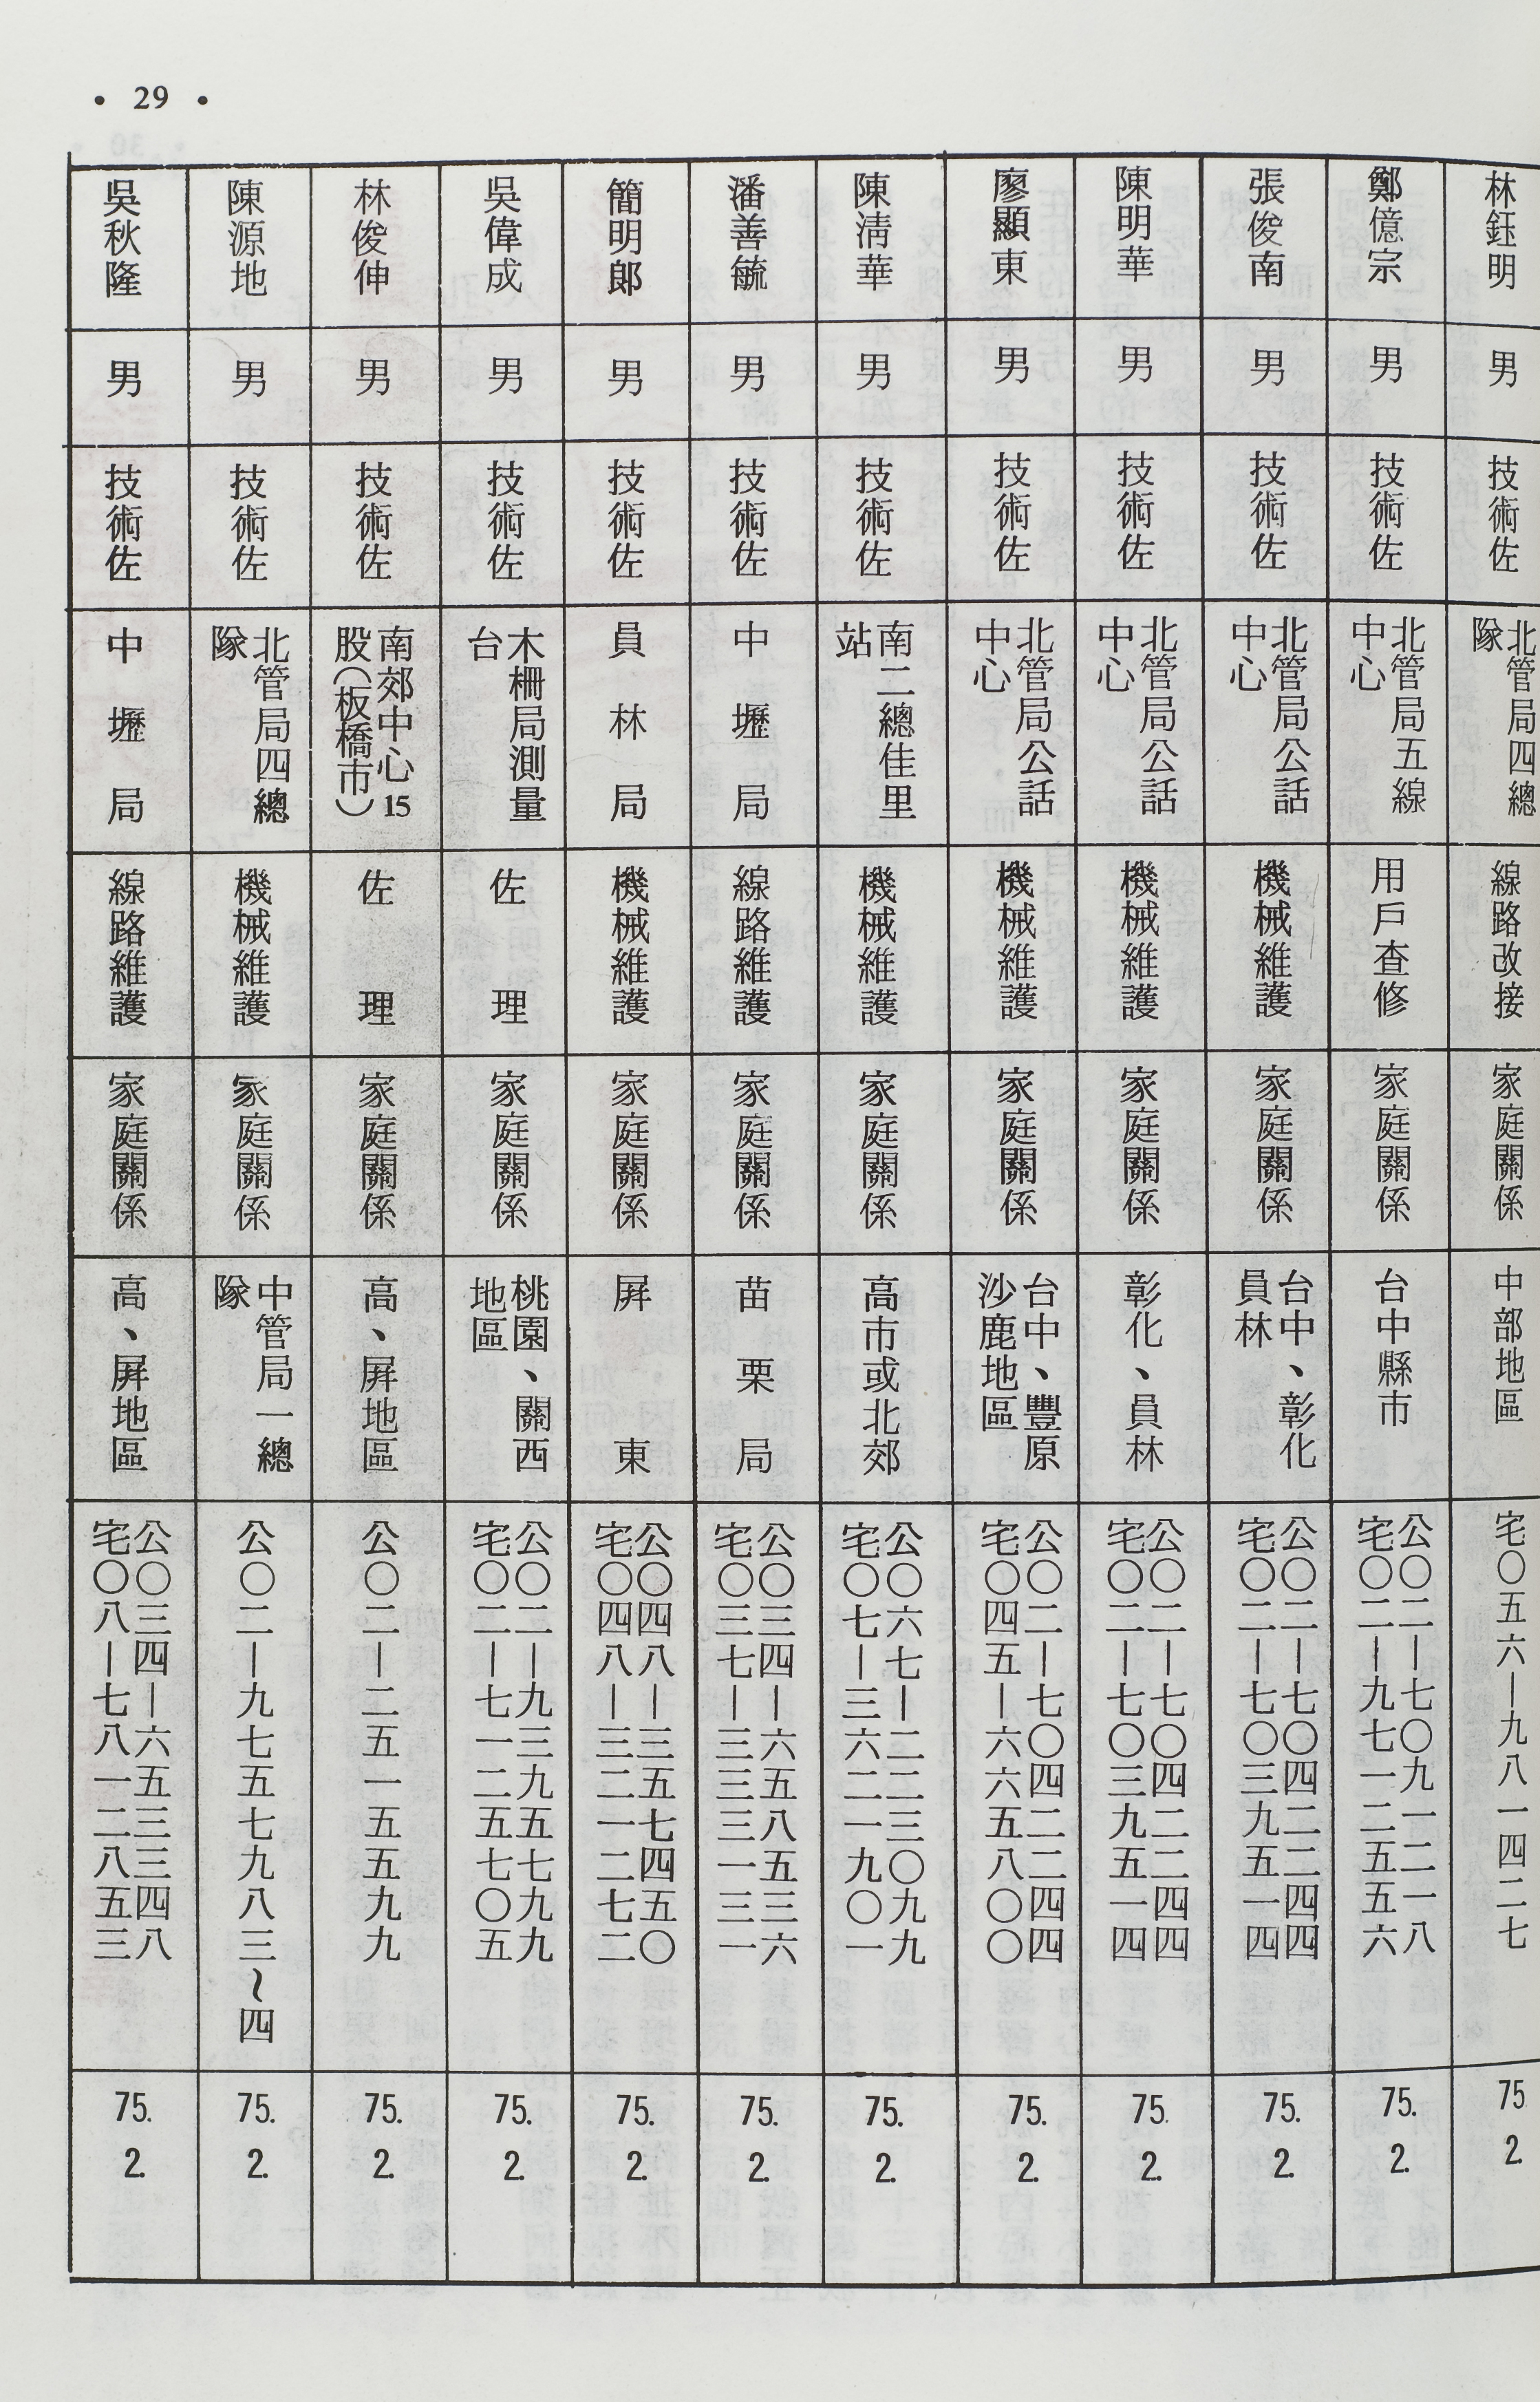 • 29 •
林鈺明
男
技術佐
北管局四總
隊
線路改接
家庭關係
中部地區
宅〇五六—九八一四二七
75.
2.
鄭億宗
男
技術佐
北管局五線
中心
用戶查修
家庭關係
台中縣市
公〇二—七〇九一二一八
宅〇二—九七一二五五六
75.
2.
張俊南
男
技術佐
北管局公話
中心
機械維護
家庭關係
台中、彰化
員林
公〇二—七〇四二二四四
宅〇二—七〇三九五一四
75.
2.
陳明華
男
技術佐
北管局公話
中心
機械維護
家庭關係
彰化、員林
公〇二—七〇四二二四四
宅〇二—七〇三九五一四
75.
2.
廖顯東
男
技術佐
北管局公話
中心
機械維護
家庭關係
台中、豐原
沙鹿地區
公〇二—七〇四二二四四
宅〇四五—六六五八〇〇
75.
2.
陳清華
男
技術佐
南二總佳里
站
機械維護
家庭關係
高市或北郊
公〇六七—二二三〇九九
宅〇七—三六二一九〇一
75.
2.
潘善毓
男
技術佐
中壢局
線路維護
家庭關係
苗栗局
公〇三四—六五八五三六
宅〇三七—三三三一三一
75.
2.
簡明郎
男
技術佐
員林局
機械維護
家庭關係
屏東
公〇四八—三五七四五〇
宅〇四八—三二一二七二
75.
2.
吳偉成
男
技術佐
木柵局測量
台
佐理
家庭關係
桃園、關西
地區
公〇二—九三九五七九九
宅〇二—七一二五七〇五
75.
2.
林俊伸
男
技術佐
南郊中心15
股(板橋市)
佐理
家庭關係
高、屏地區
公〇二—二五一五五九九
75.
2.
陳源地
男
技術佐
北管局四總
隊
機械維護
家庭關係
中管局一總
隊
公〇二—九七五七九八三~四
75.
2.
吳秋隆
男
技術佐
中壢局
線路維護
家庭關係
高、屏地區
公〇三四—六五三三四八
宅〇八—七八一二八五三
75.
2.